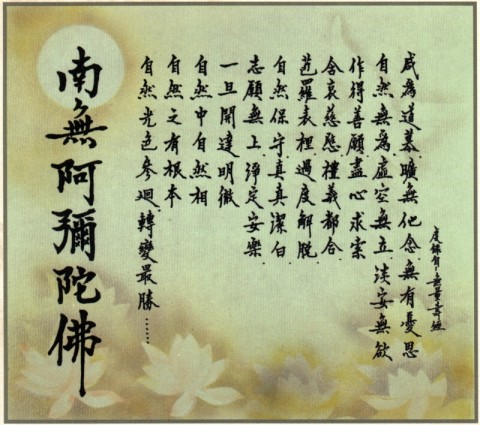 虔錄自無量壽經
咸為道慕曠無他念無有憂思
自然無為虛空無立淡安無欲
作得善願盡心求索
含哀慈愍禮義都合
苞羅表裡過度解脫
自然保守真真潔白
志願無上淨定安樂
一旦開達明徹
自然中自然相
自然之有根本
自然光色參迴轉變最勝……
南無阿彌陀佛